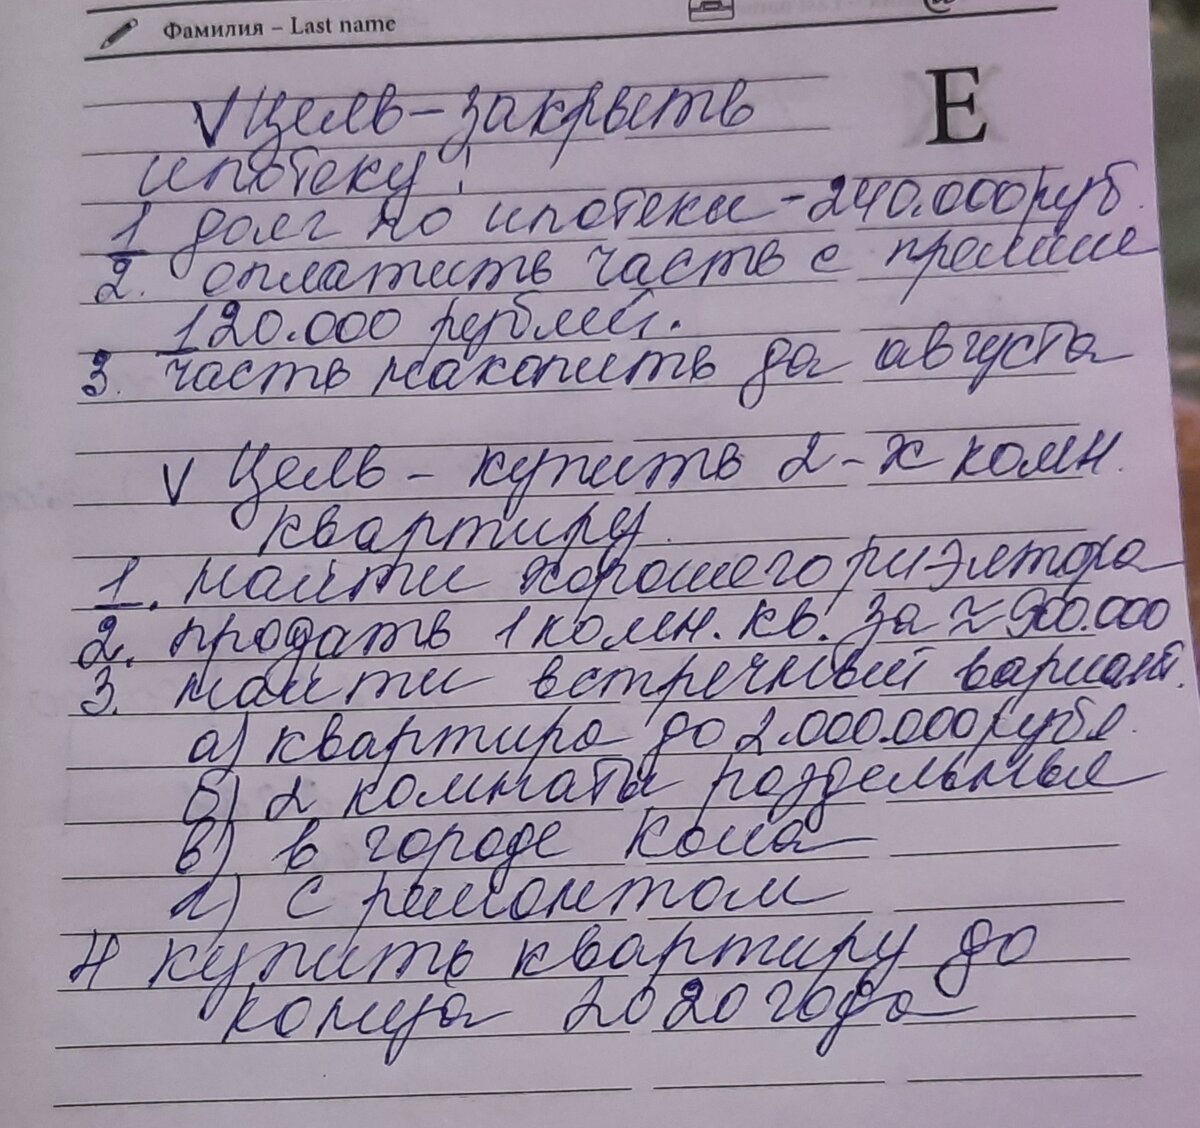 Фамилия – Last name
E
V Цель – закрыть
ипотеку!
1 долг по ипотеки – 240.000 руб.
2. оплатить часть с премии
120.000 рублей.
3. часть накопить до августа
V Цель – купить 2-х комн.
квартиру.
1. найти хорошего риэлтора
2. продать 1 комн. кв. за ≈ 900.000
3. найти встречный вариант.
а) квартира до 2.000.000 рубл.
б) 2 комнаты раздельные
в) в городе Кола
г) с ремонтом
4 купить квартиру до
конца 2020 года